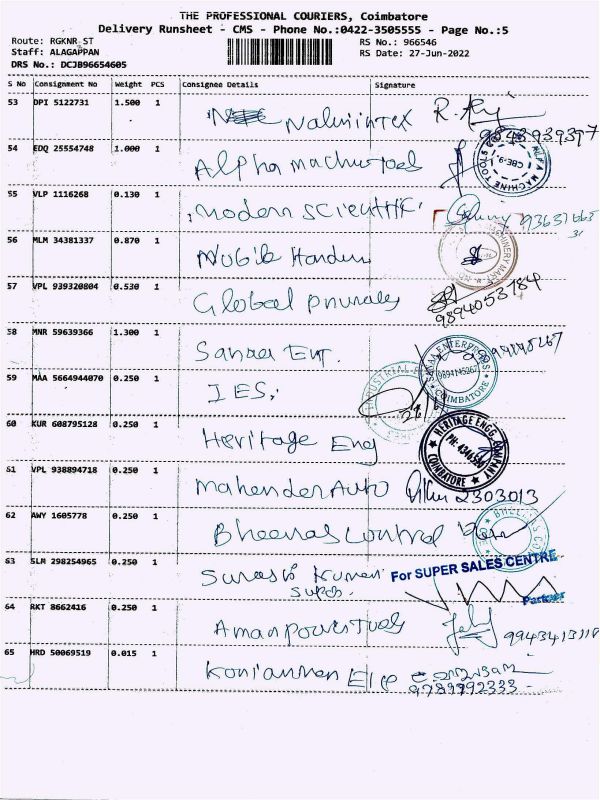 THE PROFESSIONAL COURIERS, Coimbatore
Delivery Runsheet - CMS - Phone No.:0422-3505555 - Page No.:5
Route: RGKNR-ST RS No.: 966546
Staff: ALAGAPPAN RS Date: 27-Jun-2022
DRS No.: DCJB96654605
S No Consignment No Weight PCS Consignee Details Signature
53 DPI 5122731 1.500 1
9843939397
54 EDQ 25554748 1.000 1 Alpha machinetool ALFA MACHINE TOOLS CBE-9
55 VLP 1116268 0.130 1 Modern Scientific
56 MLM 34381337 0.870 1
57 VPL 939320804 0.530 1 Global
9894053784
58 MNR 59639366 1.300 1 Sanaa Ent. SANAA ENTERPRISES 9894145267 COIMBATORE
59 MAA 5664944070 0.250 1 IES, INDUSTRIAL
60 KUR 608795128 0.250 1 Heritage Eng HERITAGE ENGG COMPANY COIMBATORE
61 VPL 938894718 0.250 1 Mahender Auto 2303013
62 AWY 1605778 0.250 1 Control
63 SLM 298254965 0.250 1 Kumar For SUPER SALES CENTRE
Partner
64 RKT 8662416 0.250 1 Aman powertools
65 HRD 50069519 0.015 1
9789992333